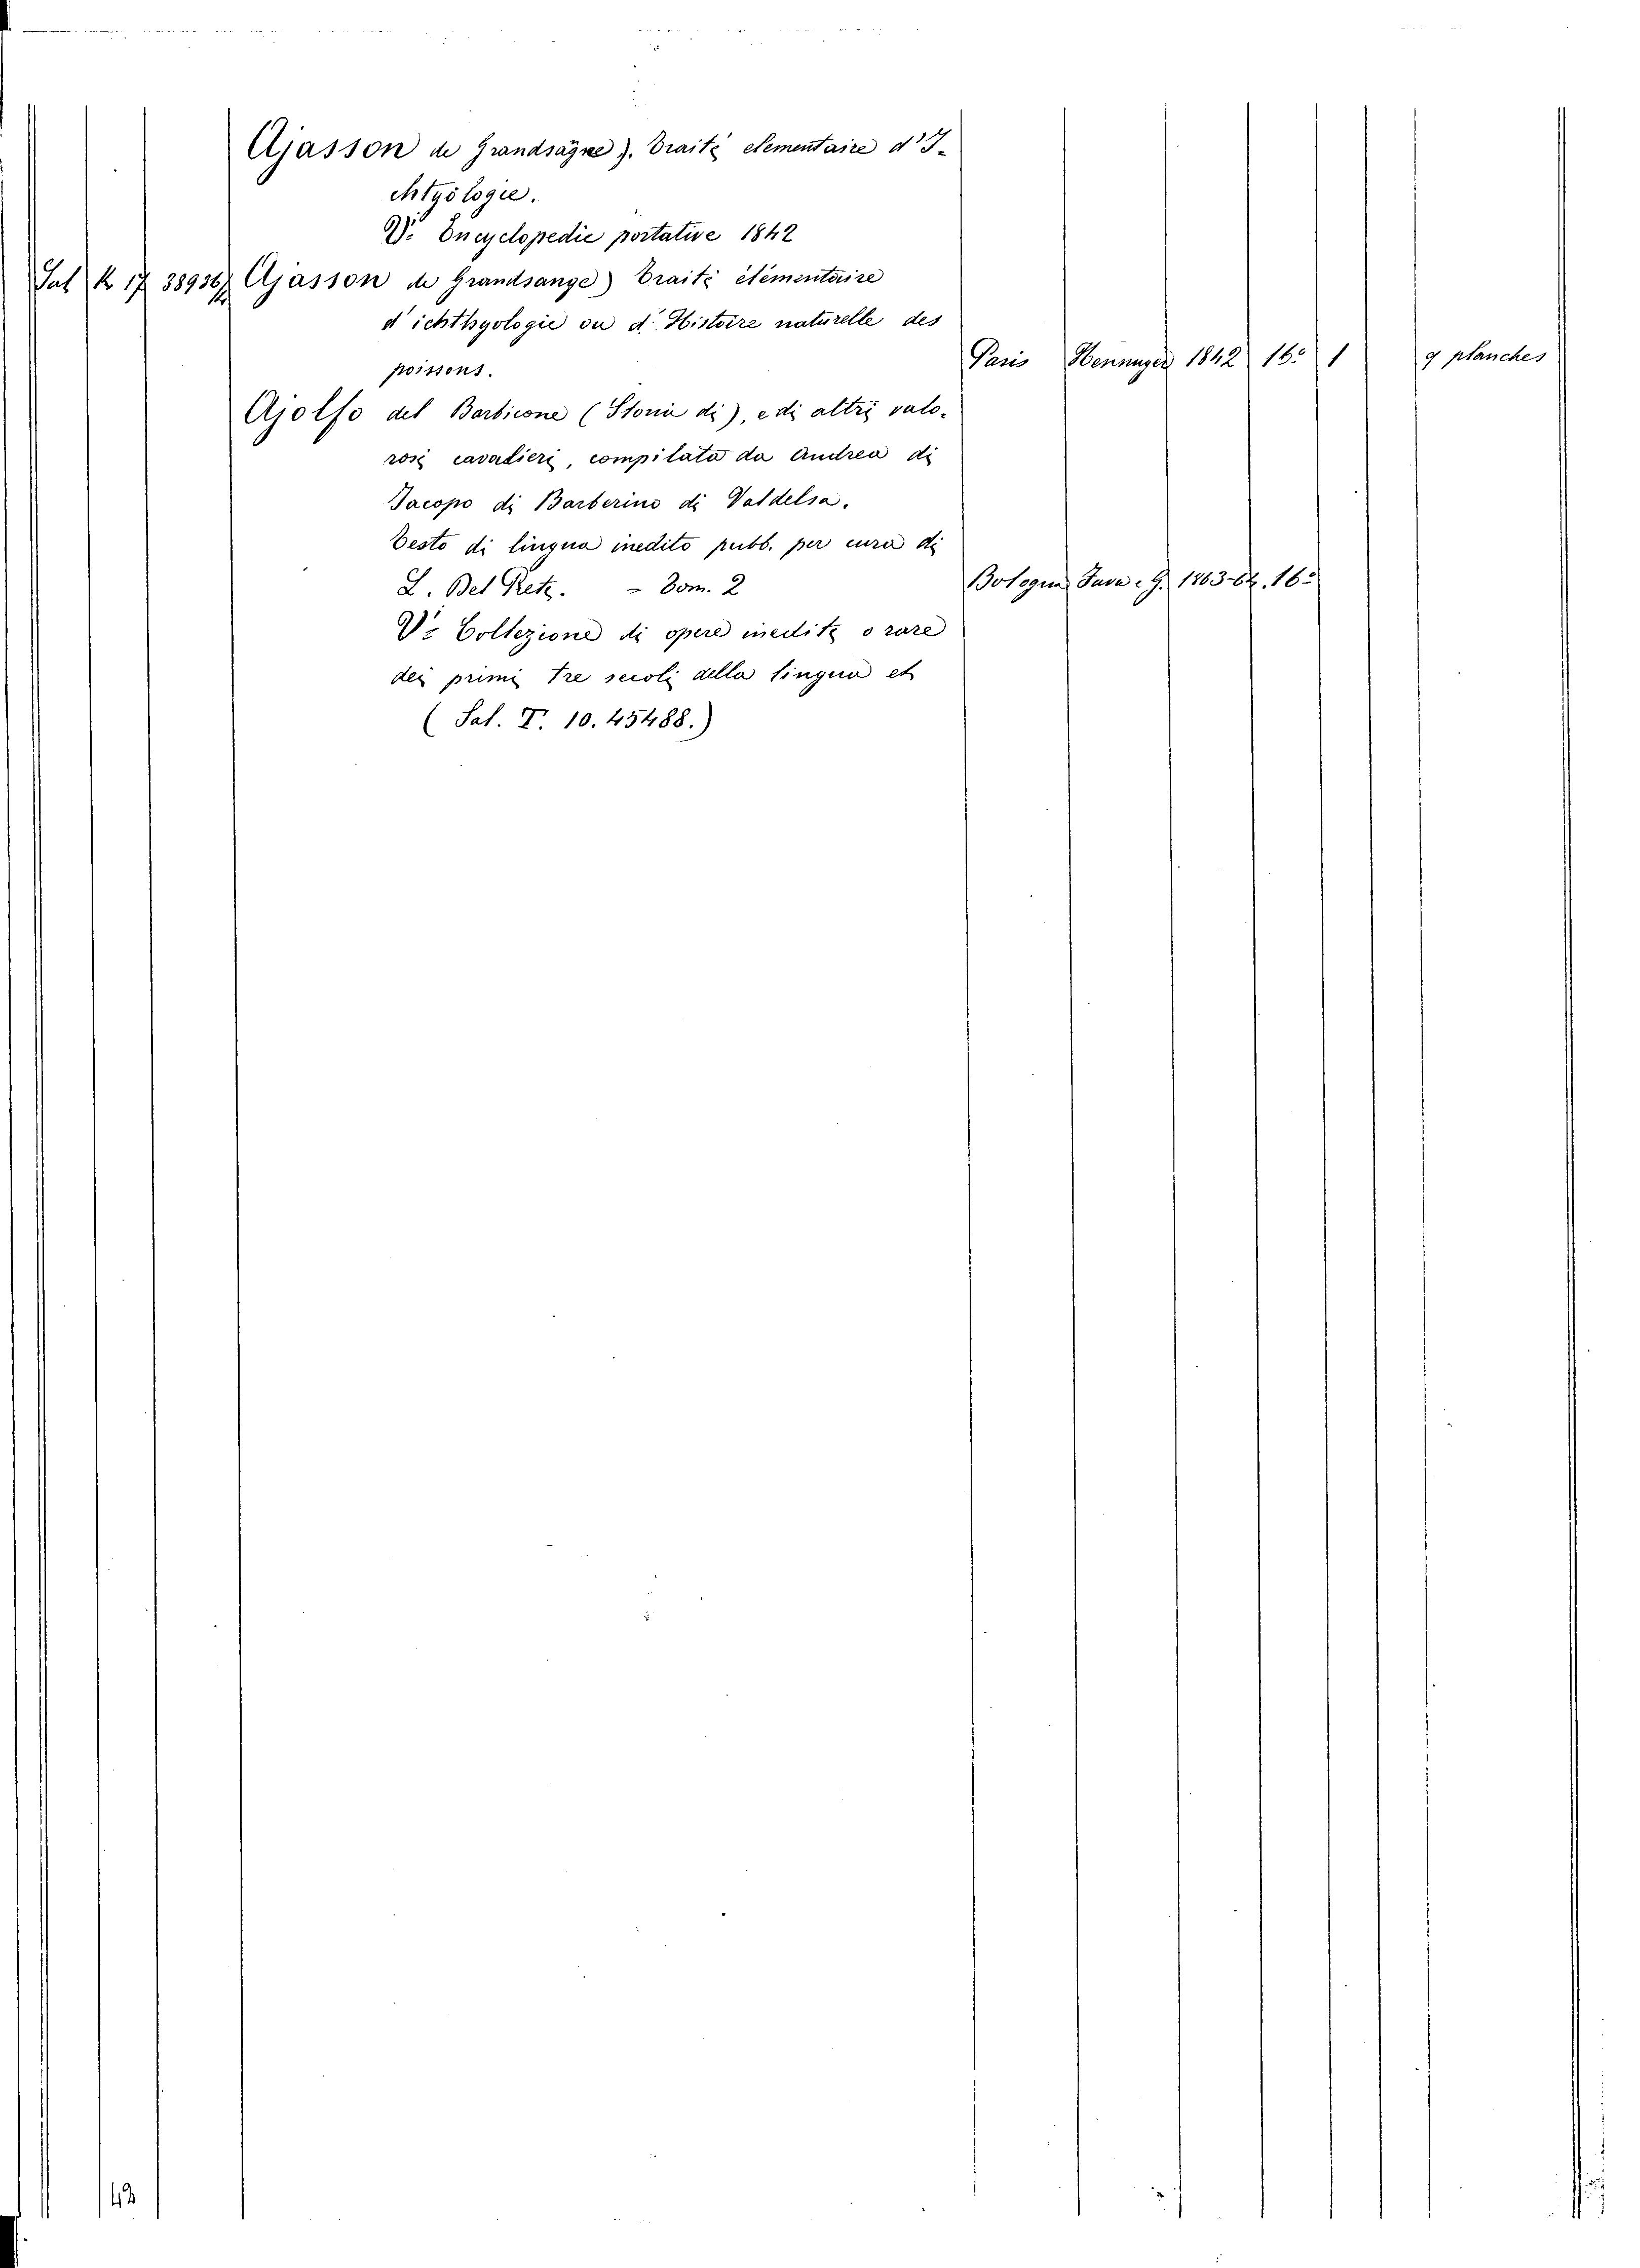 Ajasson de Grandsagne). Traité elementaire d'I-
chtyologie.
V. Encyclopedie portative 1842
Sal K 17 38936/ Ajasson de Grandsange) Traité élémentaire
d'ichthyologie ou d'Histoire naturelle des
poissons. Paris 1842 16° 1 9 planches
Ajolfo del Barbicone (Storia di), e di altri valo-
rosi cavalieri, compilata da Andrea di
Jacopo di Barberino di Valdelsa.
Testo di lingua inedito pubb. per cura di
L. Del Prete. - Tom. 2 Bologna Fava e G. 1863-64. 16°
V. Collezione di opere inedite o rare
dei primi tre secoli della lingua et
(Sal. T. 10. 45488.)
42